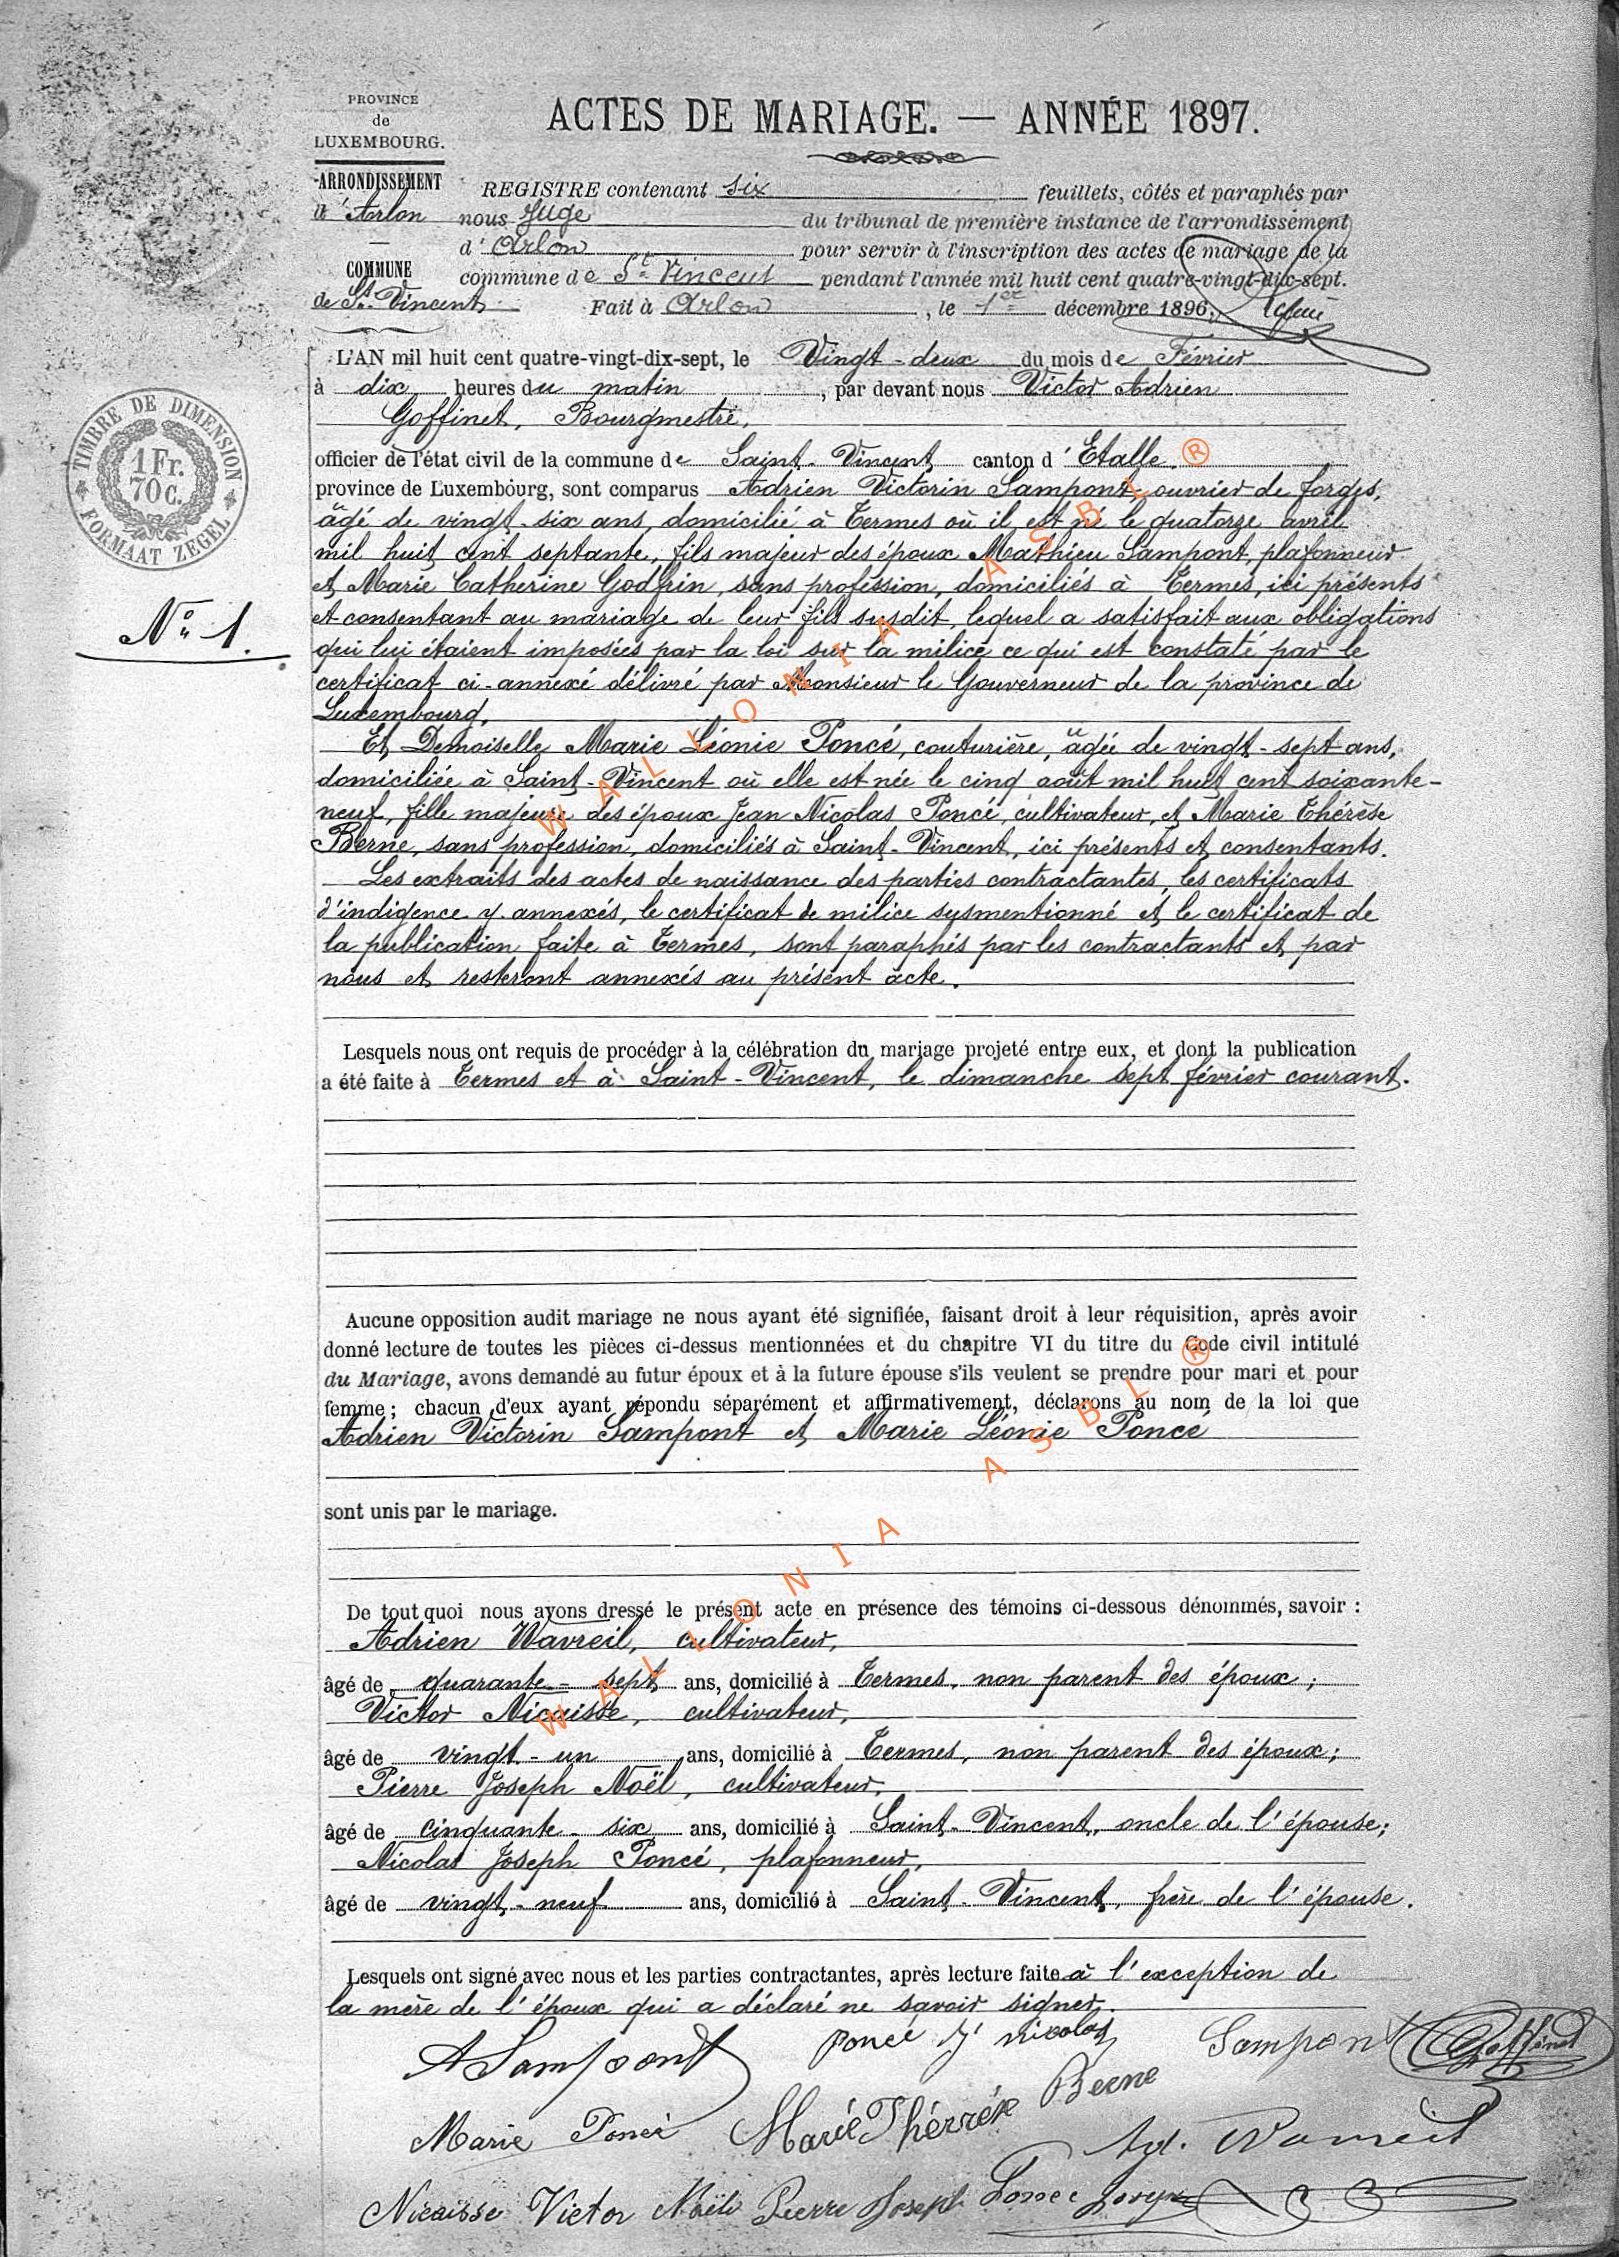 PROVINCE
de
LUXEMBOURG.
ACTES DE MARIAGE. — ANNÉE 1897.
ARRONDISSEMENT
d'Arlon
COMMUNE
de St. Vincent
REGISTRE contenant six feuillets, côtés et paraphés par
nous Juge du tribunal de première instance de l'arrondissement
d'Arlon pour servir à l'inscription des actes de mariage de la
commune de St. Vincent pendant l'année mil huit cent quatre-vingt-dix-sept.
Fait à Arlon, le 1er décembre 1896.
TIMBRE DE DIMENSION
1 Fr.
70 C.
FORMAAT ZEGEL
No. 1.
L'AN mil huit cent quatre-vingt-dix-sept, le Vingt-deux du mois de Février
à dix heures du matin, par devant nous Victor Adrien
Goffinet, Bourgmestre,
officier de l'état civil de la commune de Saint-Vincent canton d'Etalle.
province de Luxembourg, sont comparus Adrien Victorin Sampont, ouvrier de forges,
âgé de vingt-six ans, domicilié à Termes où il est né le quatorze avril
mil huit cent septante, fils majeur des époux Mathieu Sampont, plafonneur
et Marie Catherine Godfrin, sans profession, domiciliés à Termes, ici présents
et consentant au mariage de leur fils susdit, lequel a satisfait aux obligations
qui lui étaient imposées par la loi sur la milice ce qui est constaté par le
certificat ci-annexé délivré par Monsieur le Gouverneur de la province de
Luxembourg.
Et Demoiselle Marie Léonie Poncé, couturière, âgée de vingt-sept ans,
domiciliée à Saint-Vincent où elle est née le cinq août mil huit cent soixante-
neuf, fille majeure des époux Jean Nicolas Poncé, cultivateur, et Marie Thérèse
Berne, sans profession, domiciliés à Saint-Vincent, ici présents et consentants.
Les extraits des actes de naissance des parties contractantes, les certificats
d'indigence y annexés, le certificat de milice susmentionné et le certificat de
la publication faite à Termes, sont paraphés par les contractants et par
nous et resteront annexés au présent acte.
Lesquels nous ont requis de procéder à la célébration du mariage projeté entre eux, et dont la publication
a été faite à Termes et à Saint-Vincent, le dimanche sept février courant.
Aucune opposition audit mariage ne nous ayant été signifiée, faisant droit à leur réquisition, après avoir
donné lecture de toutes les pièces ci-dessus mentionnées et du chapitre VI du titre du Code civil intitulé
du Mariage, avons demandé au futur époux et à la future épouse s'ils veulent se prendre pour mari et pour
femme ; chacun d'eux ayant répondu séparément et affirmativement, déclarons au nom de la loi que
Adrien Victorin Sampont et Marie Léonie Poncé
sont unis par le mariage.
De tout quoi nous avons dressé le présent acte en présence des témoins ci-dessous dénommés, savoir :
Adrien Wavreil, cultivateur,
âgé de quarante-sept ans, domicilié à Termes, non parent des époux ;
Victor Nicaisse, cultivateur,
âgé de vingt-un ans, domicilié à Termes, non parent des époux ;
Pierre Joseph Noël, cultivateur,
âgé de cinquante-six ans, domicilié à Saint-Vincent, oncle de l'épouse ;
Nicolas Joseph Poncé, plafonneur,
âgé de vingt-neuf ans, domicilié à Saint-Vincent, frère de l'épouse.
Lesquels ont signé avec nous et les parties contractantes, après lecture faite à l'exception de
la mère de l'époux qui a déclaré ne savoir signer.
A Sampont Poncé J Nicolas Sampont Goffinet
Marie Poncé Marie Thérrése Berne Ad. Wavreil
Nicaisse Victor Noël Pierre Joseph Poncé
WALLONIA ASBL ®
WALLONIA ASBL ®